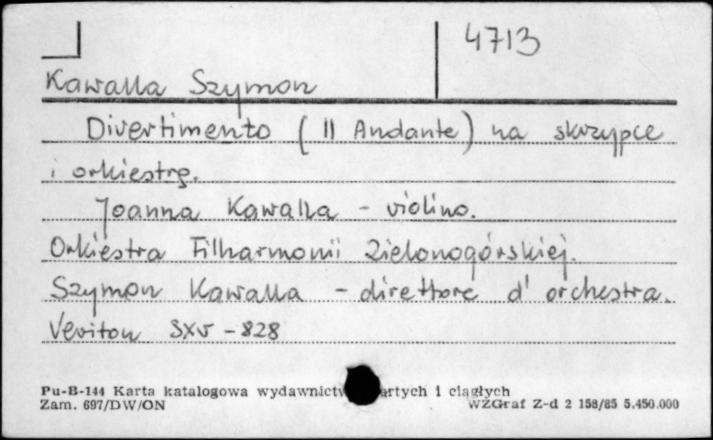 4713
Kawalla Szymon
Divertimento (II Andante) na skrzypce
i orkiestrę.
Joanna Kawalla - violino.
Orkiestra Filharmonii Zielonogórskiej.
Szymon Kawalla - direttore d'orchestra.
Veriton SXV - 828
Pu-B-144 Karta katalogowa wydawnictw artych i ciągłych
Zam. 697/DW/ON WZGraf Z-d 2 158/85 5.450.000